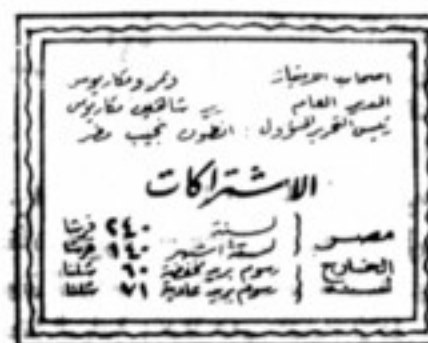 اصحاب الامتياز ونمر ومكاريوس
المدير العام شاهين مكاريوس
رئيس التحرير المسؤول : انطون نجيب مطر
الاشتراكات
مصر لسنة ٢٤٠ قرشا
لستة اشهر ١٤٠ قرشا
الخارج رسوم بريد مخفضة ٦٠ شلنا
لسنة رسوم بريد عادية ٧١ شلنا